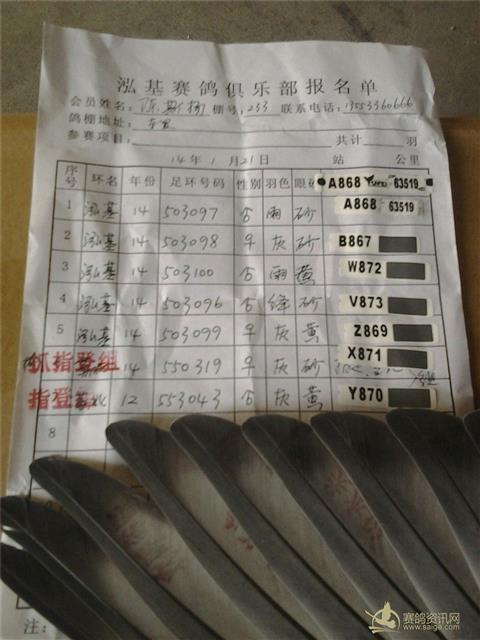 泓基赛鸽俱乐部报名单
会员姓名: 陈 棚号: 233 联系电话: 13553360666
鸽棚地址:
参赛项目: 共计 羽
14年1月21日 站 公里
序号 环名 年份 足环号码 性别 羽色 眼
A868 63519
1 泓基 14 503097 合 雨 砂 A868 63519
2 泓基 14 503098 平 灰 砂 B867
3 泓基 14 503100 合 雨 黄 W872
4 泓基 14 503096 合 绛 砂 V873
5 泓基 14 503099 平 灰 黄 Z869
抓指登组 14 550319 平 灰 砂 X871
指登 12 553043 合 灰 黄 Y870
8
注:
赛鸽资讯网
www.saige.com